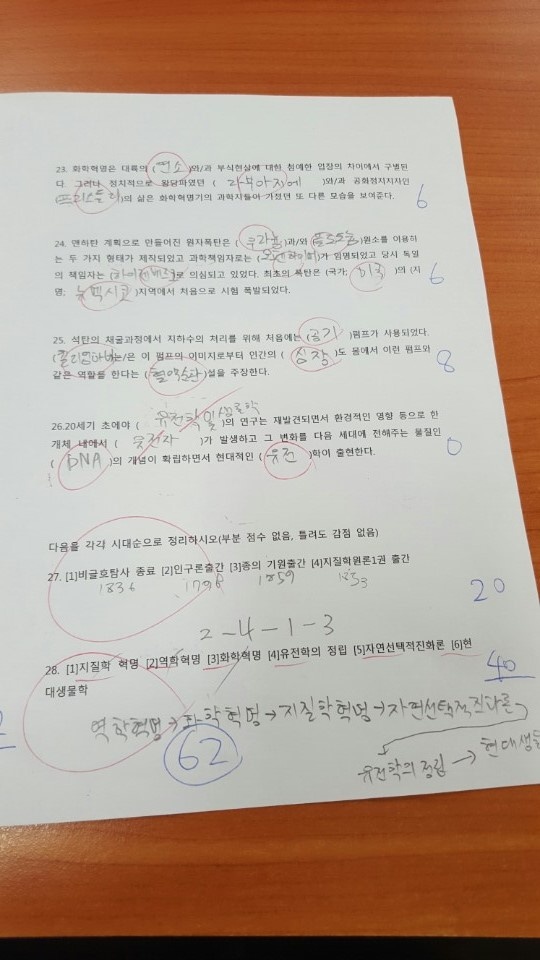 23. 화학혁명은 대륙의 ( 연소 )와/과 부식현상에 대한 첨예한 입장의 차이에서 구별된
다. 그러나 정치적으로 왕당파였던 ( 라부아지에 )와/과 공화정지지자인
(프리스틀리)의 삶은 화학혁명기의 과학자들이 가졌던 또 다른 모습을 보여준다.
6
24. 맨하탄 계획으로 만들어진 원자폭탄은 ( 우라늄 )과/와 (플루토늄)원소를 이용하
는 두 가지 형태가 제작되었고 과학책임자로는 (오펜하이머)가 임명되었고 당시 독일
의 책임자는 (하이젠베르크)로 의심되고 있었다. 최초의 폭탄은 (국가: 미국 )의 (지
명: 뉴멕시코 )지역에서 처음으로 시험 폭발되었다.
6
25. 석탄의 채굴과정에서 지하수의 처리를 위해 처음에는 (공기 )펌프가 사용되었다.
( )는/은 이 펌프의 이미지로부터 인간의 ( 심장 )도 몸에서 이런 펌프와
같은 역할를 한다는 (혈액순환)설을 주장한다.
8
26.20세기 초에야 ( 유전학 및 생물학 )의 연구는 재발견되면서 환경적인 영향 등으로 한
개체 내에서 ( 유전자 )가 발생하고 그 변화를 다음 세대에 전해주는 물질인
( DNA )의 개념이 확립하면서 현대적인 ( 유전 )학이 출현한다.
0
다음을 각각 시대순으로 정리하시오(부분 점수 없음, 틀려도 감점 없음)
27. [1]비글호탐사 종료 [2]인구론출간 [3]종의 기원출간 [4]지질학원론1권 출간
1836 1798 1859
20
2-4-1-3
28. [1]지질학 혁명 [2]역학혁명 [3]화학혁명 [4]유전학의 정립 [5]자연선택적진화론 [6]현
대생물학
40
역학혁명→화학혁명→지질학혁명→자연선택적진화론
유전학의 정립 → 현대생물
62